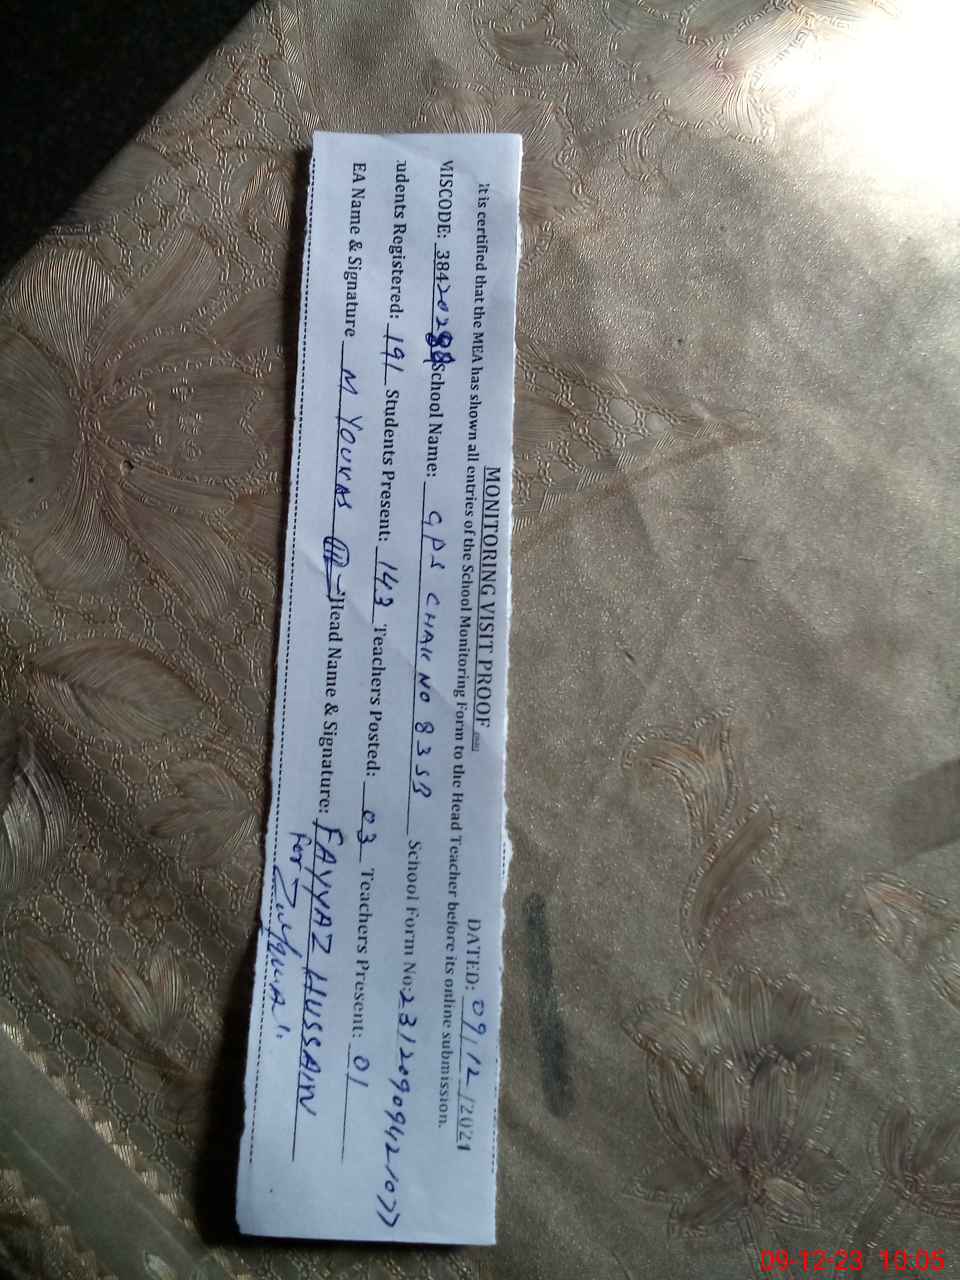 MONITORING VISIT PROOF
DATED: 09/12/2021
it is certified that the MEA has shown all entries of the School Monitoring Form to the Head Teacher before its online submission.
MISCODE: 384202 School Name: GPS CHAK NO 83 SB School Form No: 23120909421077
udents Registered: 191 Students Present: 143 Teachers Posted: 03 Teachers Present: 01
EA Name & Signature M YOUNAS Head Name & Signature: FAYYAZ HUSSAIN
For
09-12-23 10:05